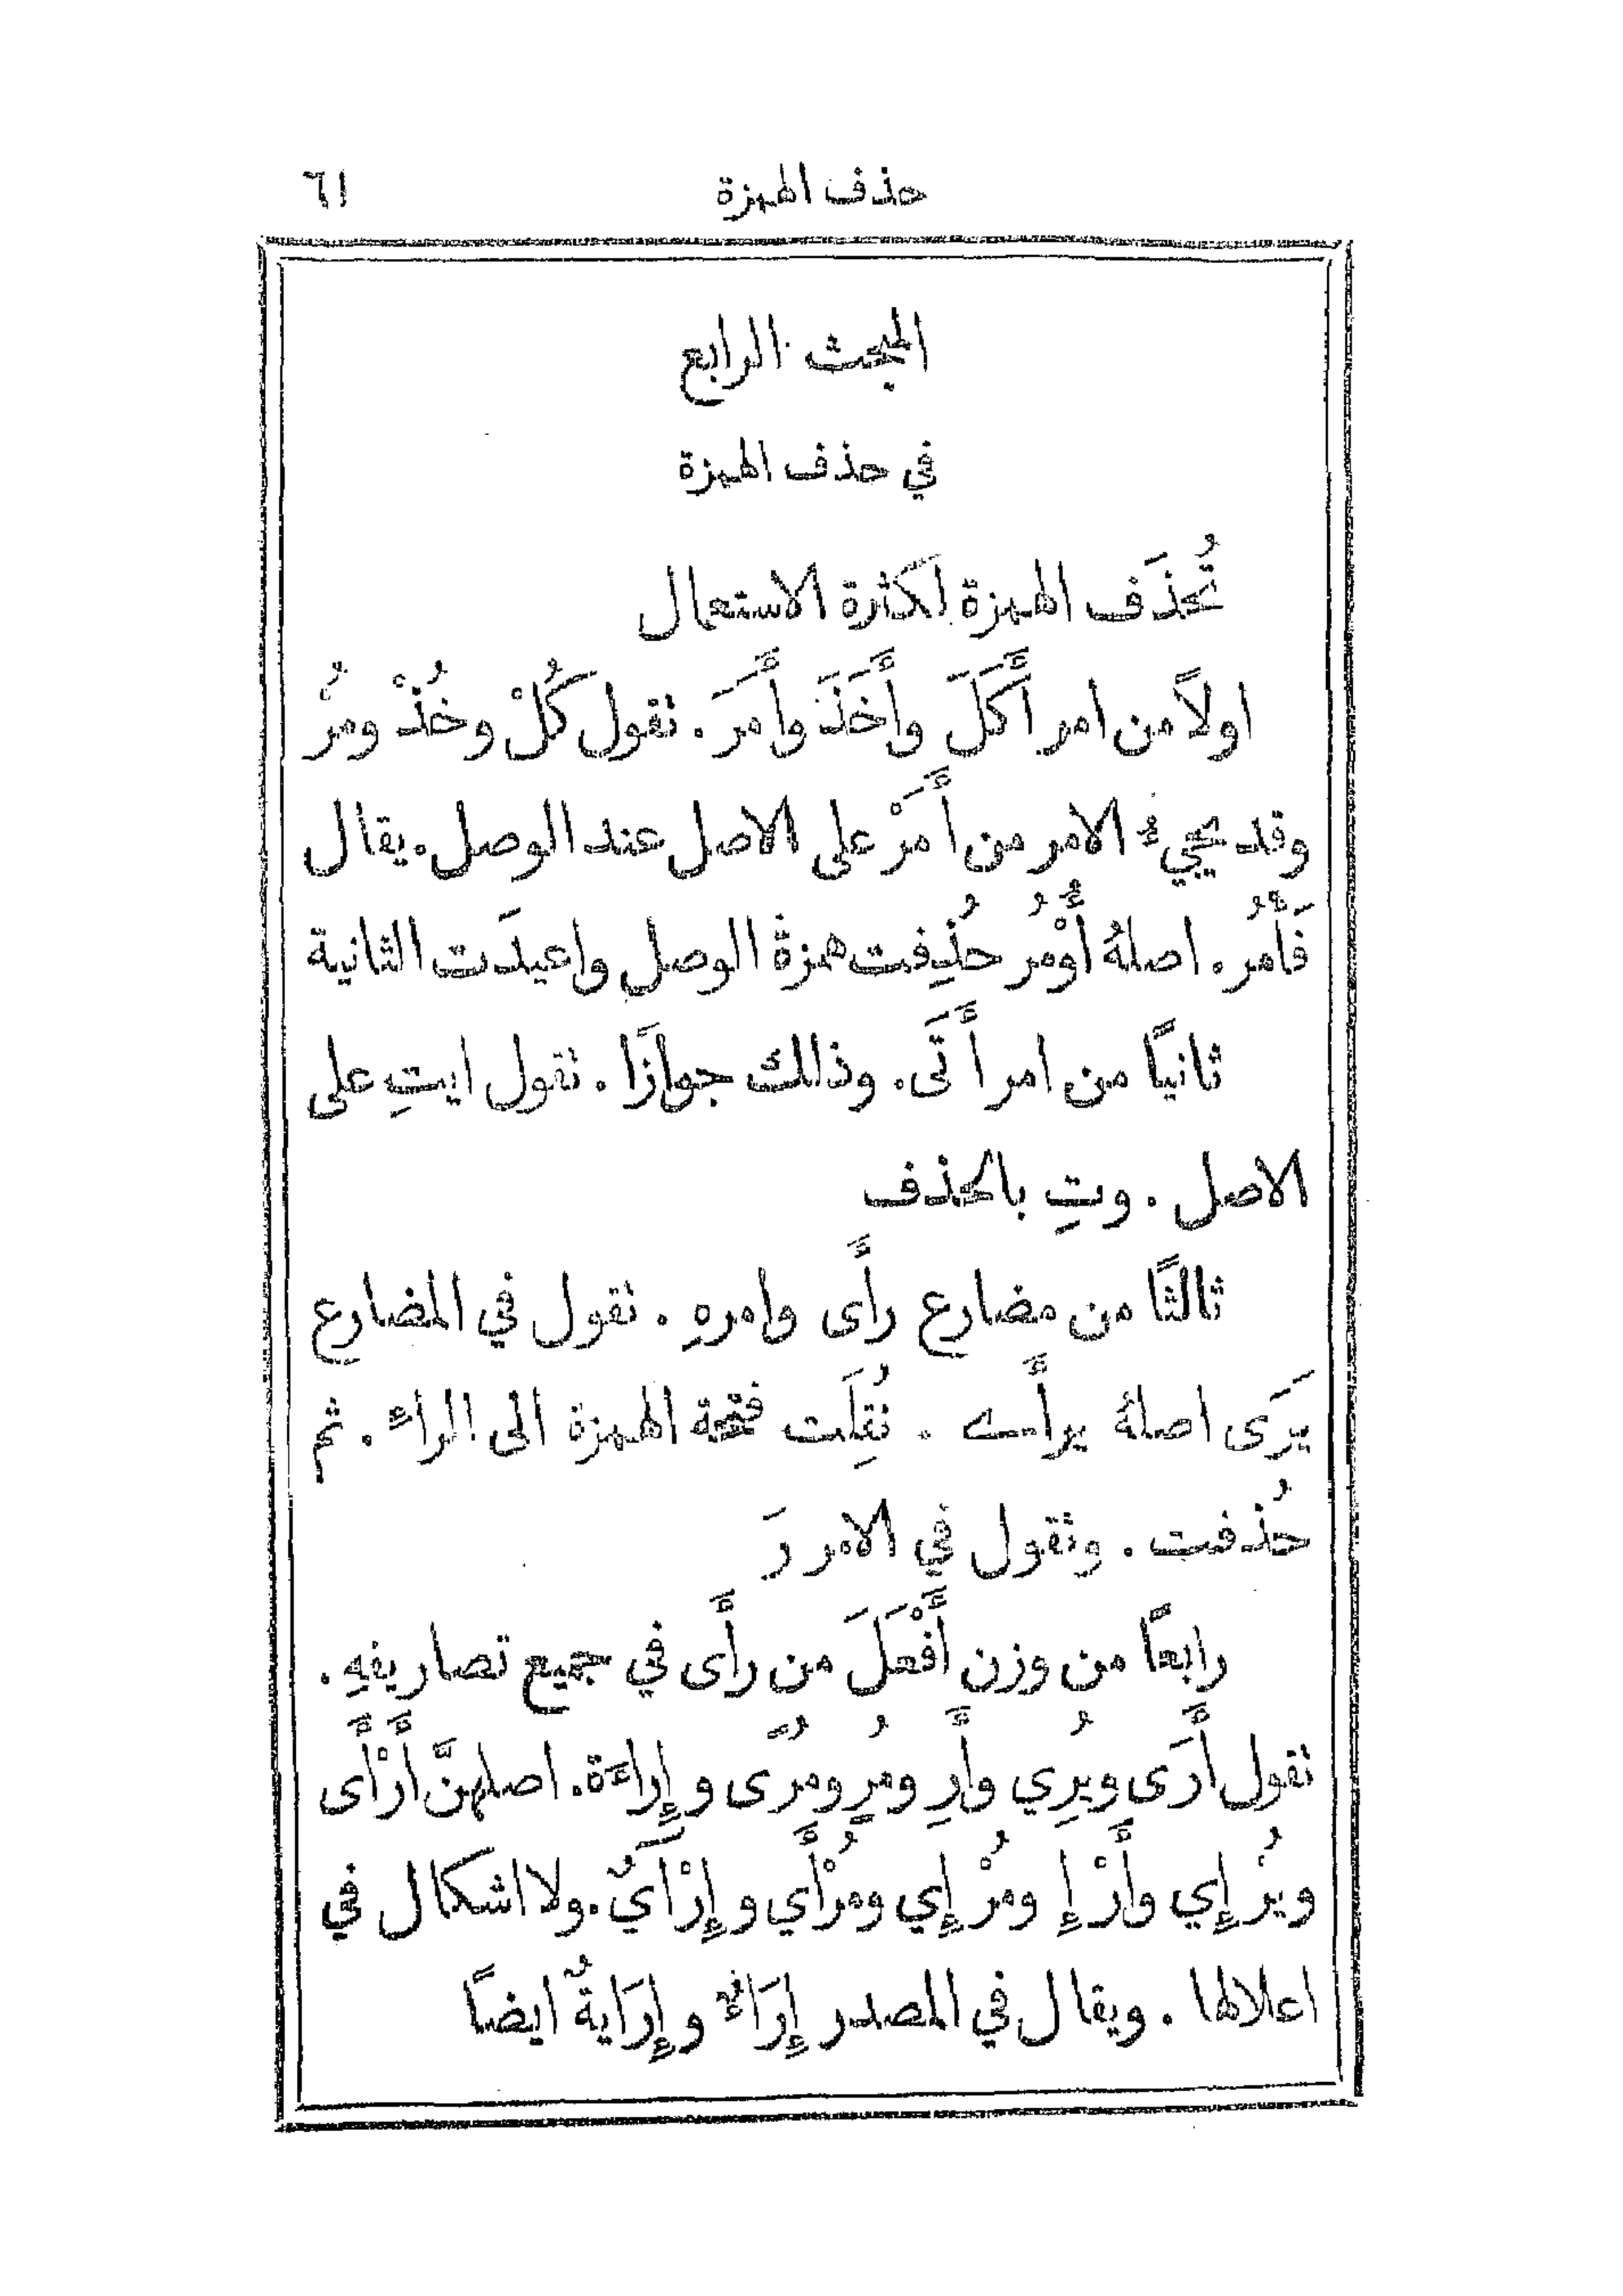 حذف الهمزة ٦١
المبحث الرابع
في حذف الهمزة
تُحذَف الهمزة لكثرة الاستعمال
اولاً من امر أَكَلَ وأَخَذَ وأَمَرَ. نقول كُلْ وخُذْ ومُرْ
وقد يجيءُ الامر من أَمَرْ على الاصل عند الوصل. يقال
فَأْمُر. اصلهُ أُوْمُر حُذِفت همزة الوصل واعيدَت الثانية
ثانيًا من امر أَتَى. وذلك جوازًا. نقول ايتِ على
الاصل. وتِ بالحذف
ثالثًا من مضارع رأَى وامرهِ. نقول في المضارع
يَرَى اصلهُ يرأَى. نُقِلَت فتحة الهمزة الى الراء. ثم
حُذفت. ونقول في الامر رَ
رابعًا من وزن أَفْعَلَ من رأَى في جميع تصاريفهِ.
نقول أَرَى ويُرِي وأَرِ ومُرٍ ومُرًى وإِراءَة. اصلهنَّ أَرْأَى
ويُرْإِي وأَرْإِ ومُرْإِي ومُرْأَي وإِرْآيٌ. ولا اشكال في
اعلالها. ويقال في المصدر إِرَاءٌ وإِرَايةٌ ايضًا